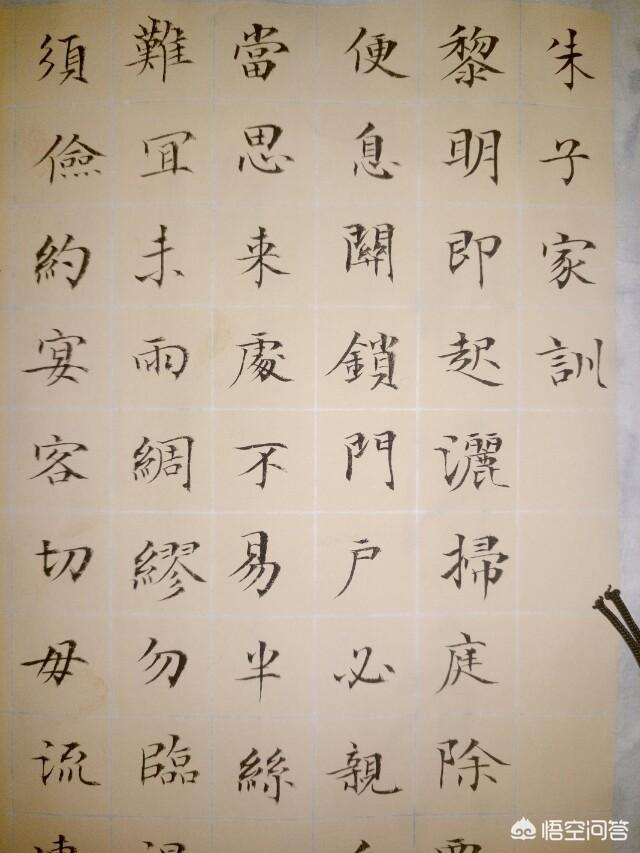 朱子家訓
黎明即起灑掃庭除
便息關鎖門户必親
當思来處不易半絲
難冝未雨綢繆勿臨
須儉約宴客切毋流
悟空问答